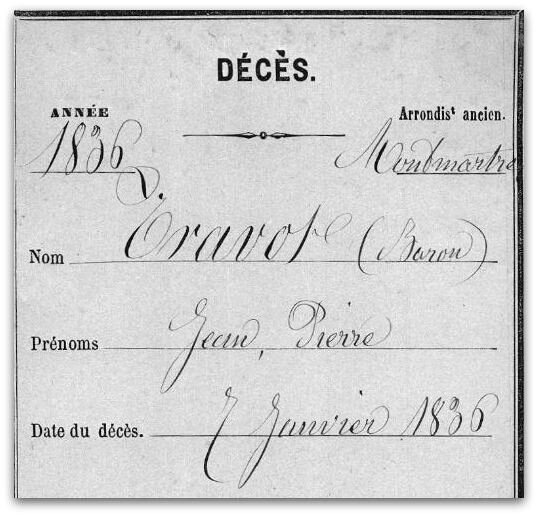 DÉCÈS.
ANNÉE
Arrondist ancien.
1836
Montmartre
Nom Travot (Baron)
Prénoms Jean, Pierre
Date du décès. 7 Janvier 1836